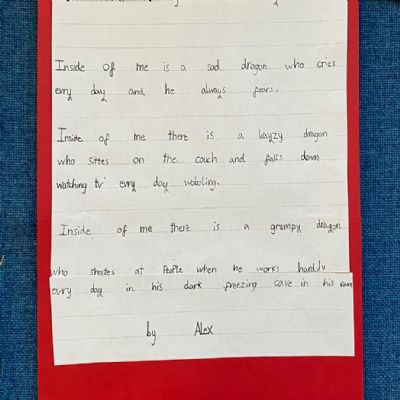 Inside of me is a sad dragon who cries
evry day and he always fears.
Inside of me there is a layzy dragon
who sittes on the couch and falls down
watching tv evry day wobbling.
Inside of me there is a grumpy dragon
who shoutes at People when he works
evry day in his dark freezing cave in his
by Alex